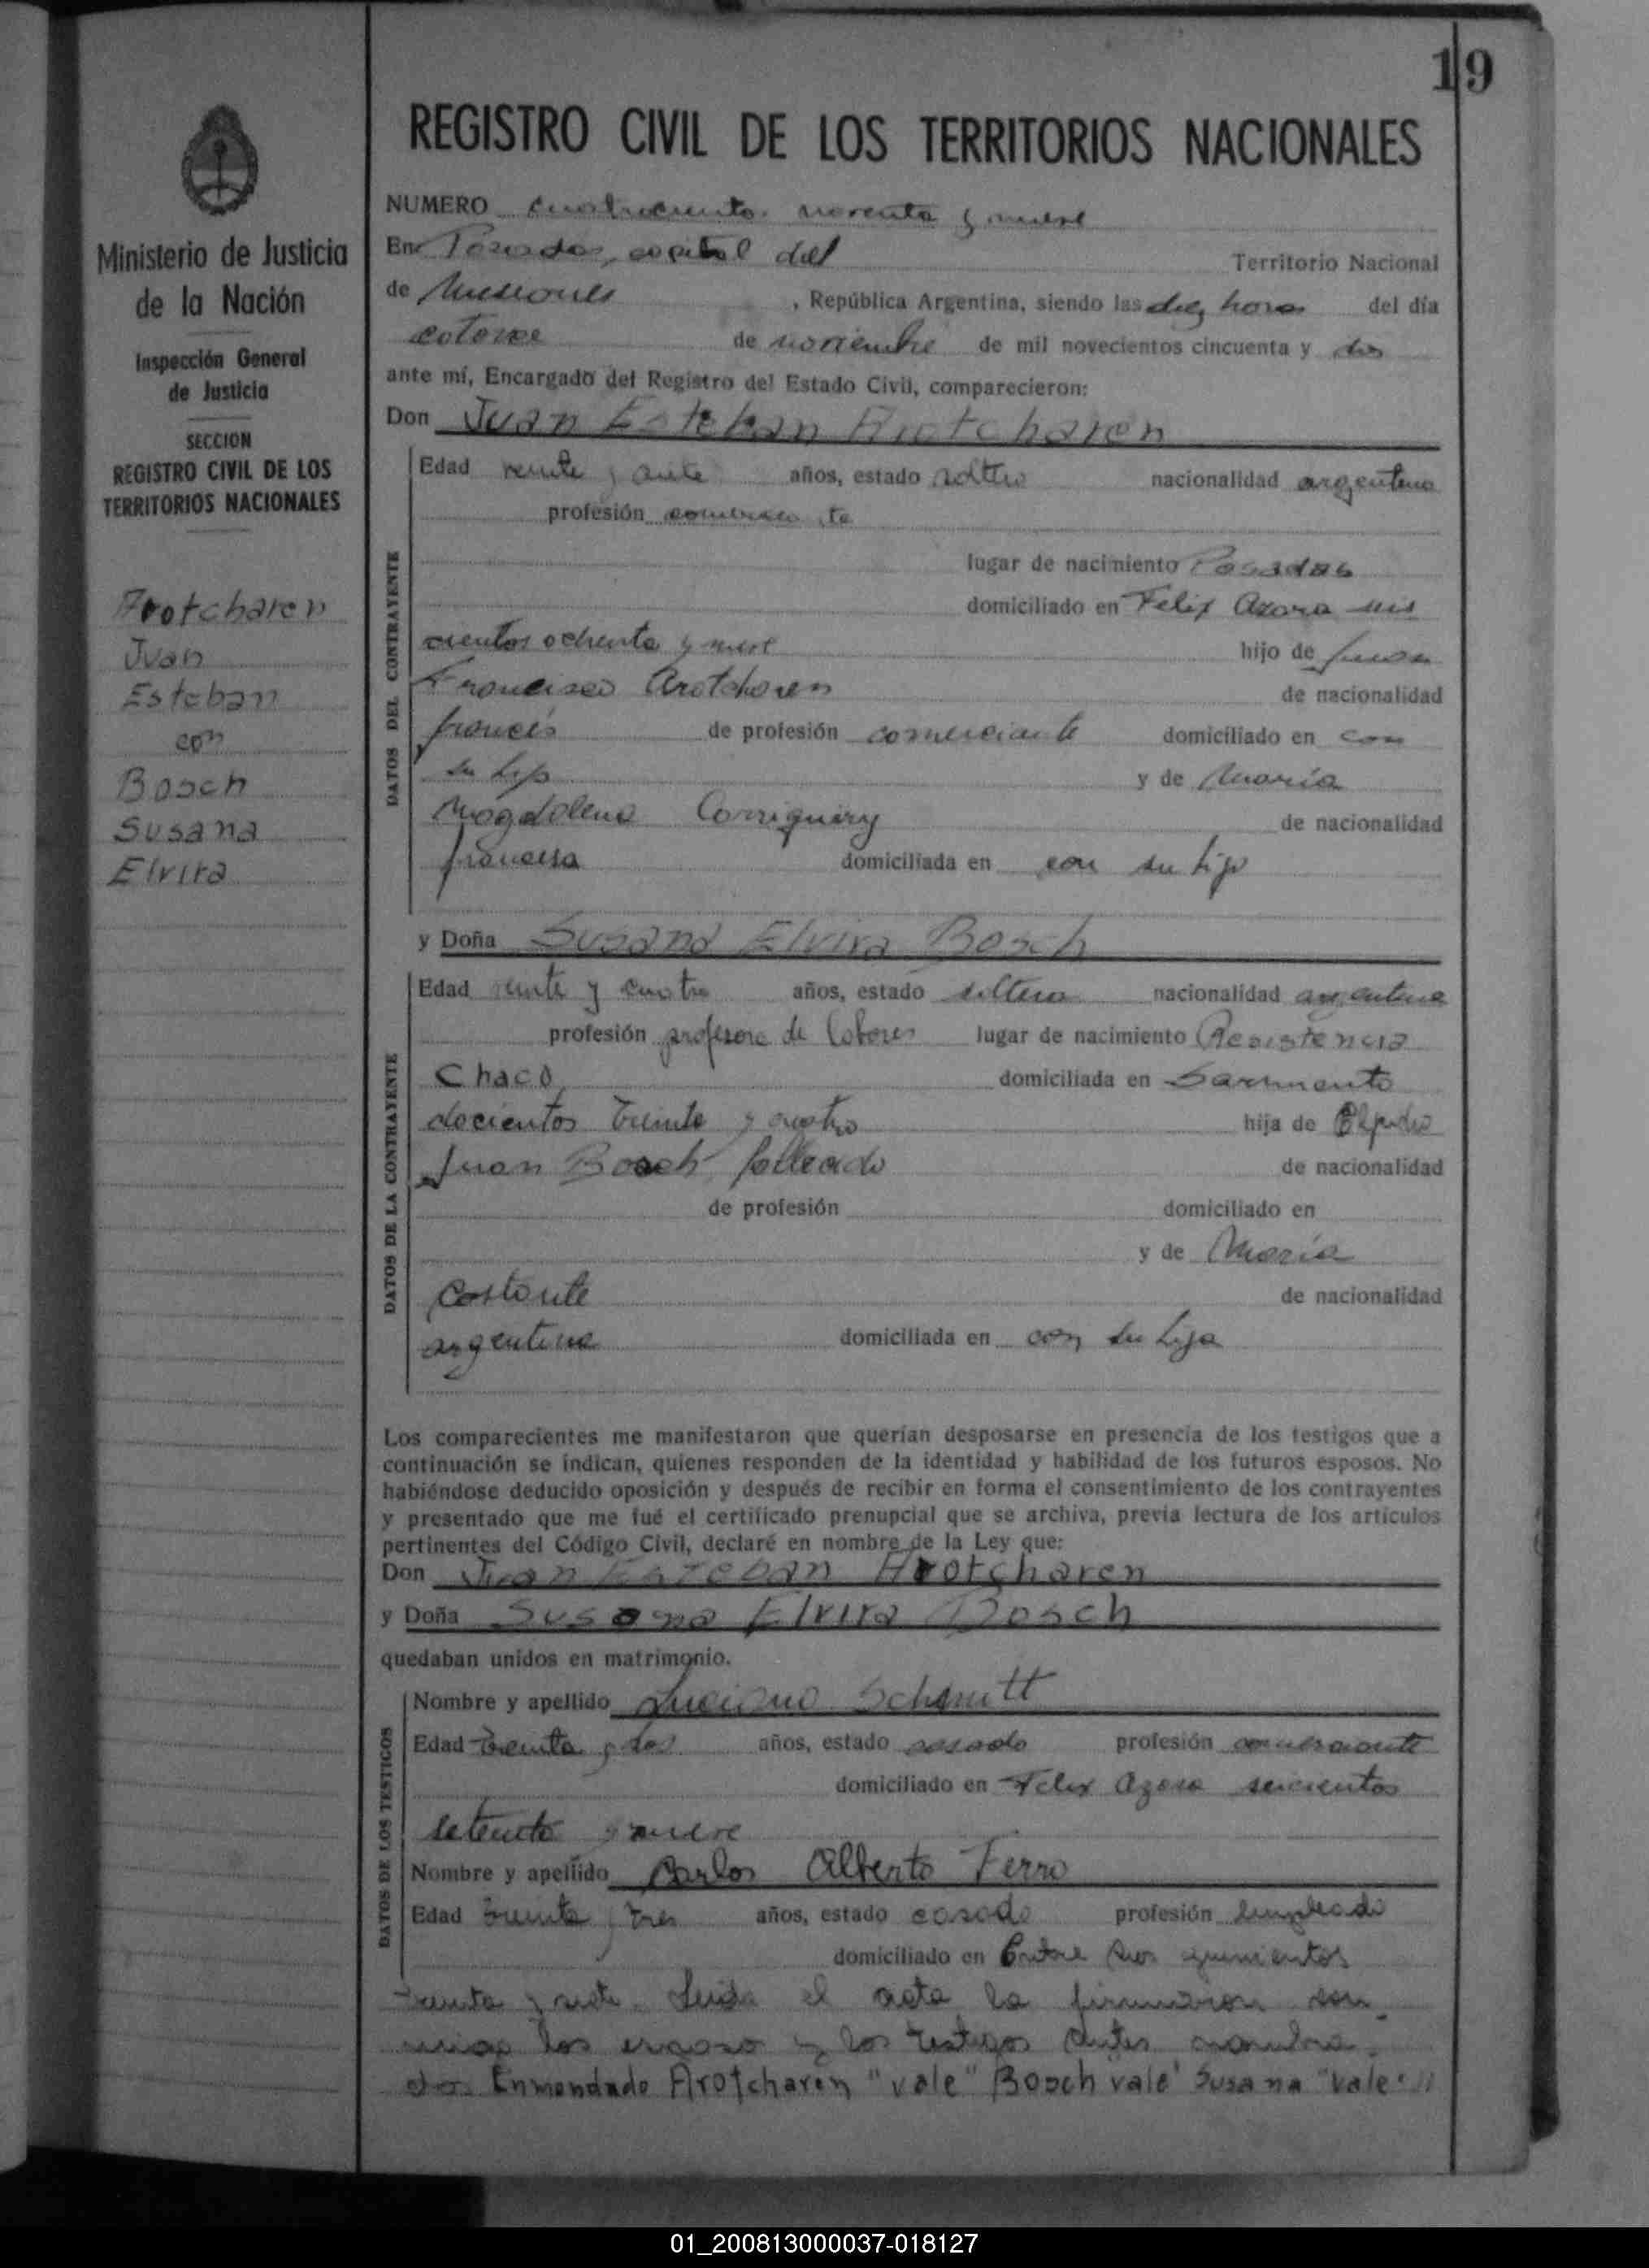 19
REGISTRO CIVIL DE LOS TERRITORIOS NACIONALES
Ministerio de Justicia
de la Nación
Inspección General
de Justicia
SECCION
REGISTRO CIVIL DE LOS
TERRITORIOS NACIONALES
Arotcharen
Juan
Esteban
con
Bosch
Susana
Elvira
NUMERO cuatrocientos noventa y nueve
En Posadas, capital del Territorio Nacional
de Misiones, República Argentina, siendo las diez horas del día
catorce de noviembre de mil novecientos cincuenta y dos
ante mí, Encargado del Registro del Estado Civil, comparecieron:
Don Juan Esteban Arotcharen
DATOS DEL CONTRAYENTE
Edad veinte y años, estado soltero nacionalidad argentino
profesión
lugar de nacimiento Posadas
domiciliado en Felix Azara seis
cientos ochenta y nueve hijo de Juan
Francisco Arotcharen de nacionalidad
francés de profesión comerciante domiciliado en con
su hijo y de María
Magdalena Corriquiry de nacionalidad
francesa domiciliada en con su hijo
y Doña Susana Elvira Bosch
DATOS DE LA CONTRAYENTE
Edad veinte y cuatro años, estado soltera nacionalidad argentina
profesión profesora de labores lugar de nacimiento Resistencia
Chaco domiciliada en Sarmiento
docientos treinta y cuatro hija de Elpidio
Juan Bosch fallecido de nacionalidad
de profesión domiciliado en
y de María
de nacionalidad
argentina domiciliada en con su hija
Los comparecientes me manifestaron que querían desposarse en presencia de los testigos que a
continuación se indican, quienes responden de la identidad y habilidad de los futuros esposos. No
habiéndose deducido oposición y después de recibir en forma el consentimiento de los contrayentes
y presentado que me fué el certificado prenupcial que se archiva, previa lectura de los artículos
pertinentes del Código Civil, declaré en nombre de la Ley que:
Don Juan Esteban Arotcharen
y Doña Susana Elvira Bosch
quedaban unidos en matrimonio.
DATOS DE LOS TESTIGOS
Nombre y apellido Luciano Schmitt
Edad treinta y dos años, estado casado profesión comerciante
domiciliado en Felix Azara seiscientos
setenta y nueve
Nombre y apellido Carlos Alberto Ferro
Edad treinta y tres años, estado casado profesión empleado
domiciliado en Entre Rios quinientos
treinta y siete. Leida el acta la firmaron con
migo los esposos y los testigos antes nombra
dos. Enmendado Arotcharen "vale" Bosch vale" Susana "vale"
01_200813000037-018127